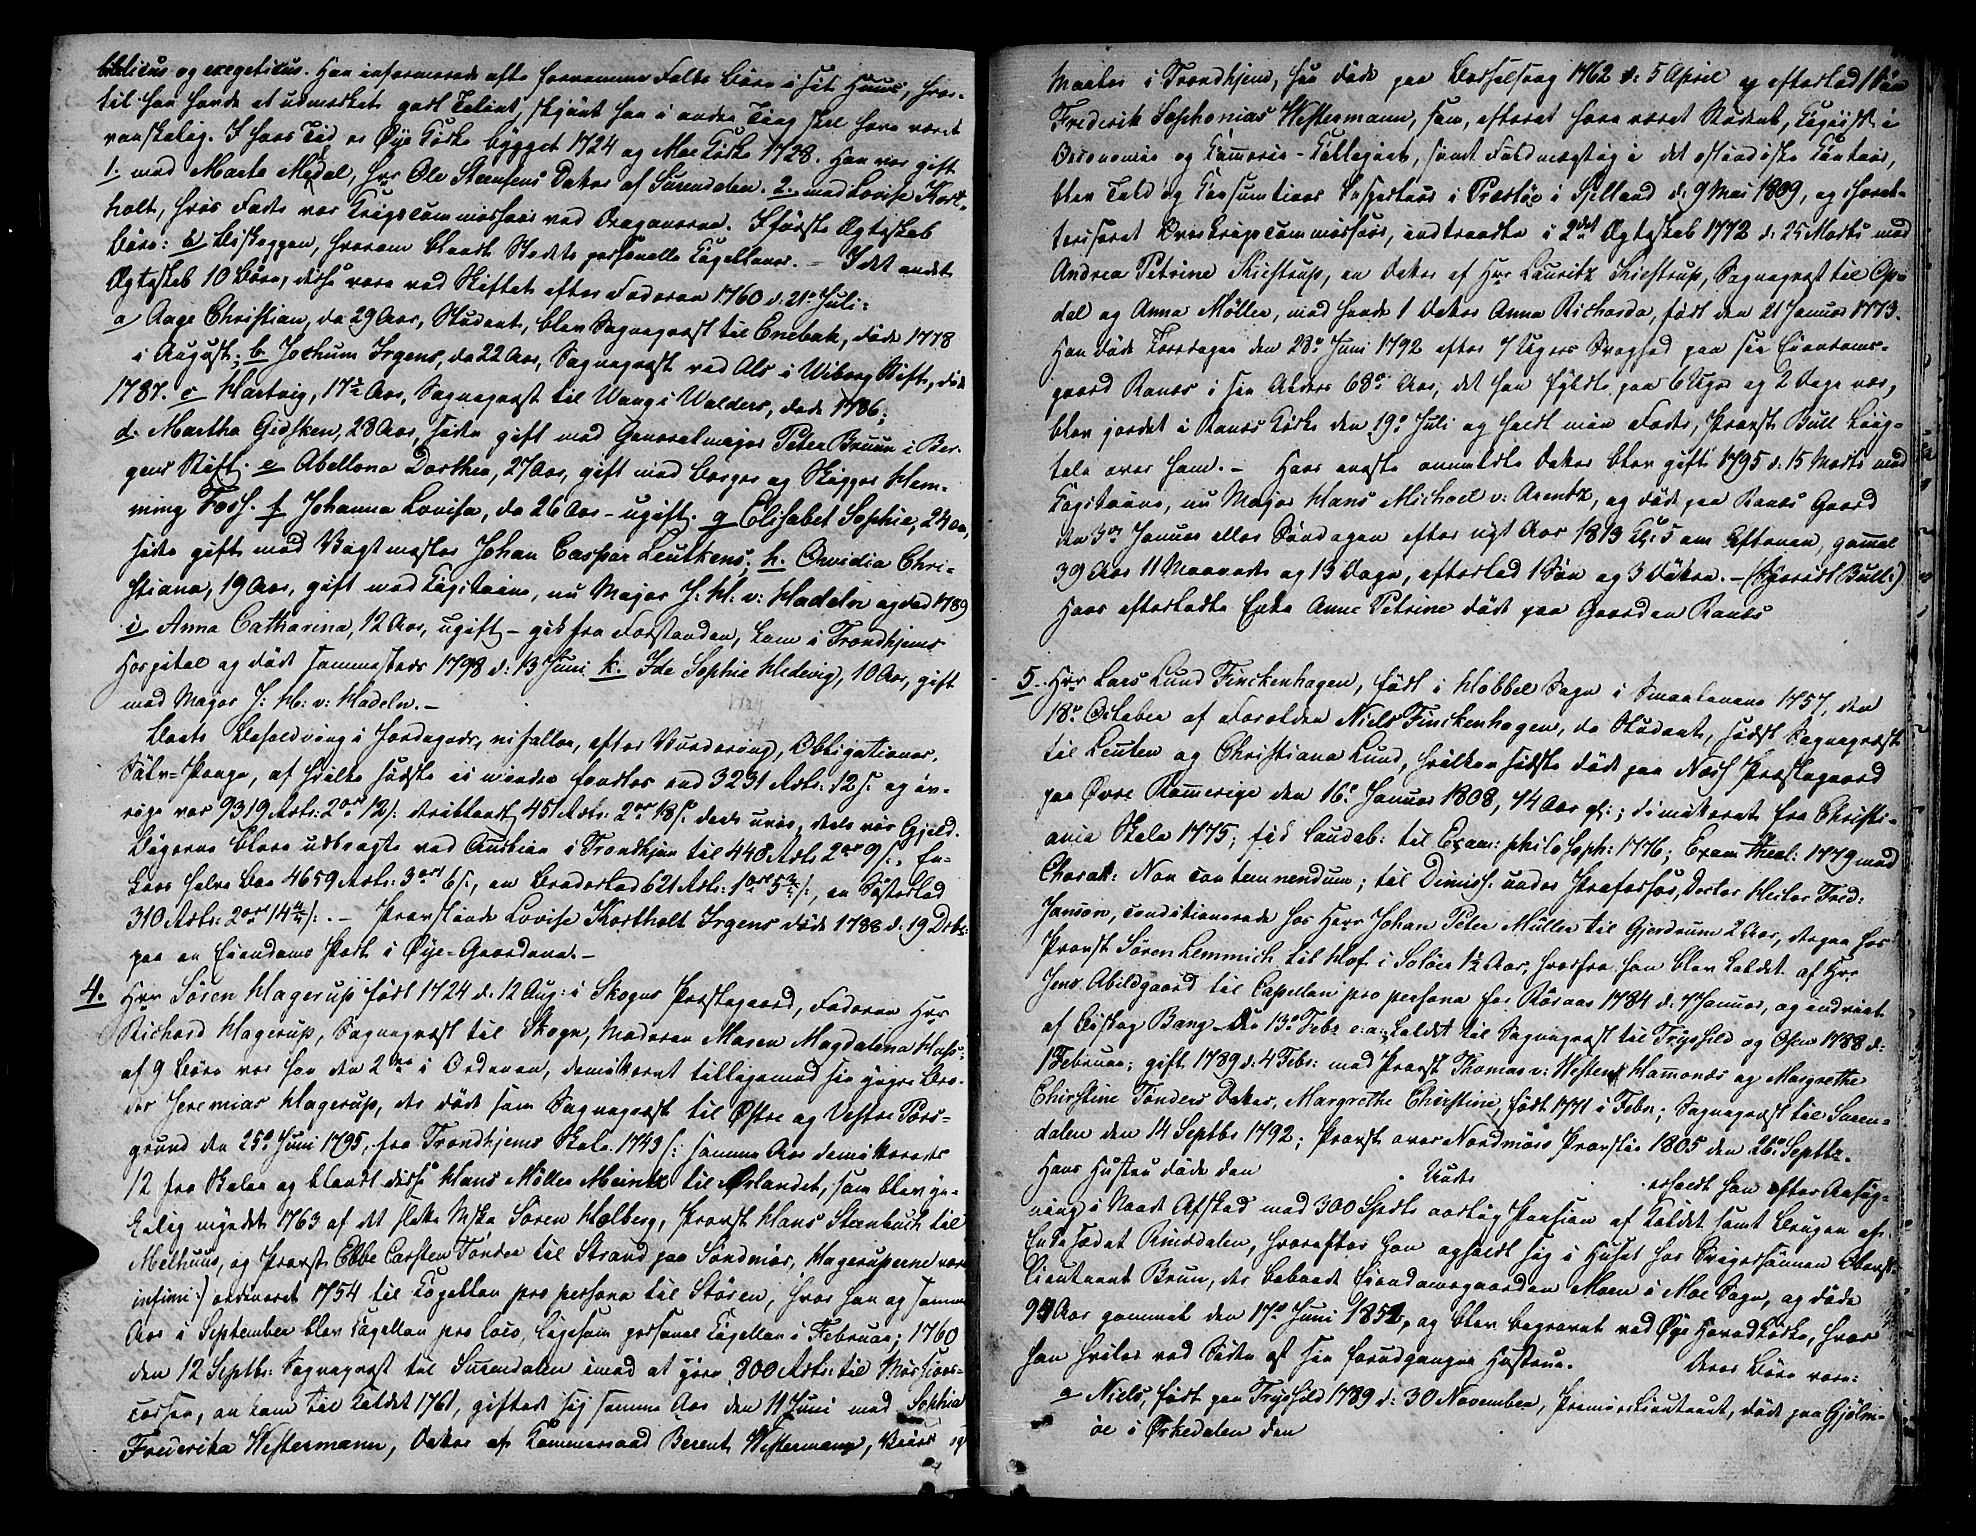 biblicus og exegeticus. Han informerede ofte fornemme Folks Børn i sit Huus, hvor-
til han havde et udmærket godt Talent, skjønt han i andre Ting skal have været
vanskelig. I hans Tid er Øye Kirke bygget 1724 og Moe Kirke 1728. Han var gift
1. med Marte Medal, Hrr Ole Steensens Datter af Surendalen. 2. med Lovise Kort-
holt, hvis Fader var Krigscommissair ved Dragonerne. I første Ægteskab
Børn: a Eiskeggen, hvorom blandt Stedets personelle Capellaner. – I det andet
Ægteskab 10 Børn, disse vare ved Skiftet efter Faderen 1760 d: 21de Juli:
a Aage Christian, da 29 Aar, Student, blev Sognepræst til Enebak, døde 1778
i August; b. Jochum Irgens, da 22 Aar, Sognepræst ved Als i Wiborg Stift, død
1787. c Hartvig, 17½ Aar, Sognepræst til Wang i Walders, døde 1786;
d. Martha Gidsken, 28 Aar, siden gift med Generalmajor Peter Bruun i Ber-
gens Stift. e Abellona Dorthea, 27 Aar, gift med Borger og Skipper Hem-
ming Foss. f Johanna Lovisa, da 26 Aar – ugift. g Elisabet Sophie, 24 Aar,
siden gift med Vagtmester Johan Caspar Leutkens; h. Ovidia Chri-
stiana, 19 Aar, gift med Capitaine, nu Major J: H: v: Hadeln og død 1789
i Anna Catharina, 12 Aar, ugift – gik fra Forstanden, kom i Trondhjems
Hospital og døde sammesteds 1798 d: 13 Juni k. Ide Sophie Hedevig, 10 Aar, gift
med Major J: H: v: Hadeln. –
Boets Beholdning i Jordegods, nifaller, efter Vurdering, Obligationer,
Sølv-Penge, af hvilke sidste ei mindre fandtes end 3231 Rdlr: 12 s: og øv-
rige var 9319 Rdlr: 2 ort 12 s: deriblandt 451 Rdlr: 2 ort 18 s: deels uvis, deels vis Gjeld.
Bøgerne bleve udbragte ved Auction i Trondhjem til 448 Rdlr 2 ort 9 s:, En-
kens halve Boe 4659 Rdlr: 3 ort 6 s:, en Broderlod 621 Rdlr: 1 ort 5 s:, en Søsterlod
310 Rdlr: 2 ort 14 s: – Provstinde Lovise Kortholt Irgens døde 1788 d: 19 Decbr:
paa en Eiendoms Part i Øye-Gaardene. –
4. Hrr Søren Hagerup født 1724 d: 12 Aug: i Skogns Præstegaard, Faderen Hrr
Richard Hagerup, Sognepræst til Skogn, Moderen Maren Magdalena Hass:
af 9 Børn var han den 2den i Ordenen, demitteret tilligemed sin yngre Bro-
der Jeremias Hagerup, der døde som Sognepræst til Østre og Vestre Pors-
grund den 25de Juni 1795, fra Trondhjems Skole 1743 (: samme Aar demitterede
12 fra Skolen og blandt disse Hans Møller Meintz til Ørlandet, som blev yn-
kelig myrdet 1763 af det slette Mske Søren Holberg, Provst Hans Steenbuch til
Melhuus, og Provst Ebbe Carsten Tønder til Strand paa Søndmør, Hagerupperne vare
infimi:) ordineret 1754 til Capellan pro persona til Støren, hvor han og samme
Aar i September blev Capellan pro loco, ligesom personel Capellan i Februar; 1760
den 12 Septbr: Sognepræst til Surendalen imod at give 300 Rdlr: til Missions-
cassen, an kom til Kaldet 1761, giftede sig samme Aar den 11 Juni med Sophia
Frederika Westermann, Datter af Kammerraad Berent Westermann, Veier og
Maaler i Trondhjem, hun døde paa Bosselsvog 1762 d: 5 April og efterlod 1 Søn
Frederik Sophonias Westermann, som, efterat have været Student, Copiist i
Oeconomie og Commerce-Collegiet, samt Fuldmægtig i det ostindiske Contoir,
blev Told og Consumtions Inspecteur i Præstøe i Siælland d: 9 Mai 1809, og charac-
teriseret Overkrigscommissair, indtraadte i 2det Ægteskab 1772 d: 25 Marts med
Andrea Petrine Kiestrup, en Datter af Hrr Lauritz Kiestrup, Sognepræst til Op-
dal og Anna Möller, med hende 1 Datter Anna Richarda, født den 21 Januar 1773.
Han døde Torsdagen den 28de Juni 1792 efter 7 Ugers Svaghed paa sin Eiendoms-
gaard Ranes i sin Alders 68de Aar, det han fyldte paa 6 Uger og 2 Dage nær,
blev jordet i Ranes Kirke den 19de Juli og holdt min Fader, Provst Bull Liig-
tale over ham. – Hans eneste anmeldte Datter blev gift 1795 d: 15 Marts med
Capitaine, nu Major Hans Michael v: Arentz, og døde paa Ranes Gaard
den 3die Januar eller Søndagen efter nyt Aar 1813 Kl: 5 om Aftenen, gammel
39 Aar 11 Maaneder og 13 Dage, efterlod 1 Søn og 3 Døttre. – (Sjovidt Bull:)
Hans efterladte Enke Anne Petrine døde paa Gaarden Ranes
5. Hrr Lars Lund Finckenhagen, født i Hobbel Sogn i Smaalenene 1757, den
18de October af Forældre Niels Finckenhagen, da Student, sidst Sognepræst
til Leuten og Christiana Lund, hvilken sidste døde paa Næss Præstegaard
paa Øvre Romerige den 16de Januar 1808, 74 Aar gl:; dimitteret fra Christi-
ania Skole 1775; fik laudab: til Exam: philosoph: 1776; Exam Theol: 1779 med
Charak: Non contemnendum; til Dimiss: under Professor, Doctor Hector Fred:
Janson, conditionerede hos Herr Johan Peter Müller til Gjerdrum 2 Aar, derpaa hos
Provst Søren Lemmich til Hof i Soløer 1½ Aar, hvorfra han blev kaldet af Hrr
Jens Abildgaard til Capellan pro persona for Røraas 1784 d. 7 Januar, og indviet
af Biskop Bang den 13de Febr: e: a:; kaldet til Sognepræst til Trysild og Osen 1788 d:
1 Februar; gift 1789 d: 4 Febr: med Provst Thomas v: Westen Hammonds og Margrethe
Christine Tønders Datter, Margrethe Christine, født 1771 i Febr:; Sognepræst til Suren-
dalen den 14 Septbr 1792; Provst over Nordmørs Provstie 1805 den 26de Septbr.
Hans Hustru døde den
Under erholdt han efter Ansøg-
ning i Naade Afsked med 300 Spdlr aarlig Pension af Kaldet samt Brugen af
Enkesædet Rinddalen, hvorefter han opholdt sig i Huset hos Svigersønnen Oberst-
lieutnant Brun, der beboede Eiendomsgaarden Moen i Moe Sogn, og døde
94 Aar gammel den 17de Juni 1852, og blev begravet ved Øye Hovedkirke, hvor
han hviler ved Siden af sin forudgangne Hustrue. Deres Børn vare:
a Niels, født paa Trysild 1789 d: 30 November, Premierlieutnant, døde paa Gjølm-
öe i Ørkedalen den